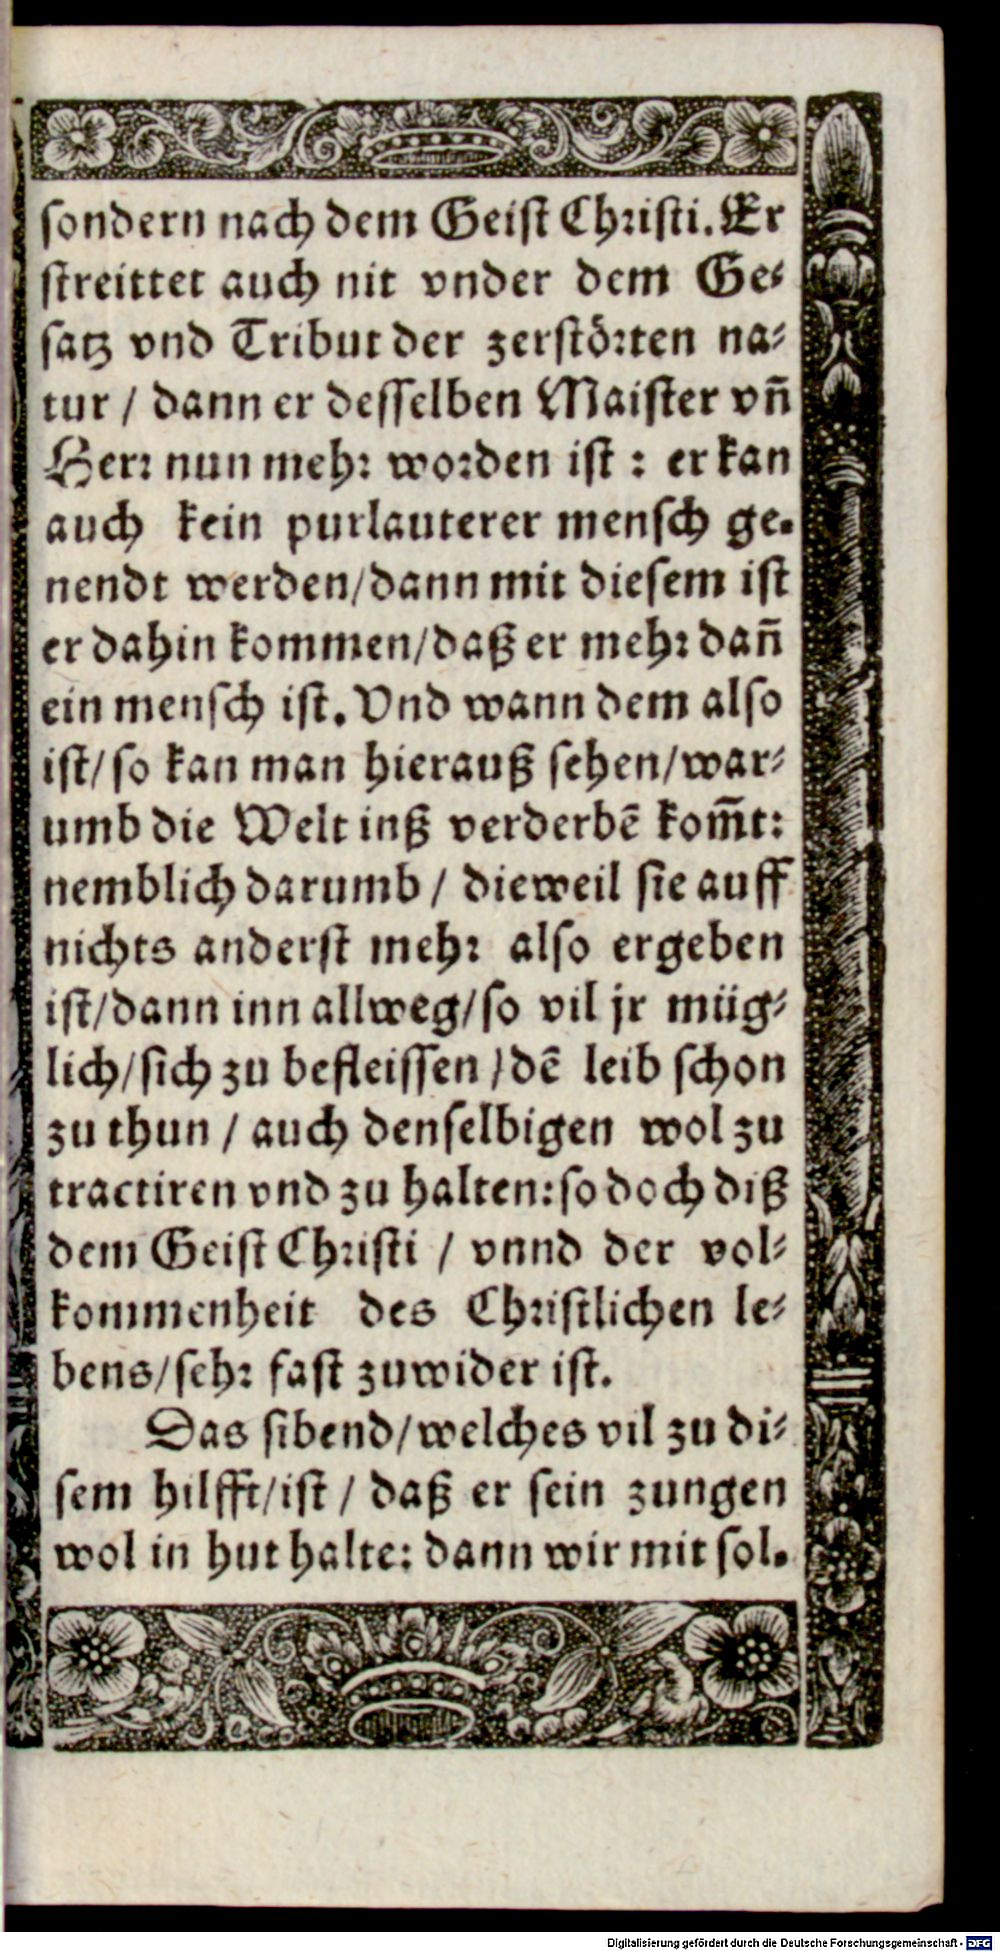 sondern nach dem Geist Christi. Er
streittet auch nit vnder dem Ge-
satz vnd Tribut der zerstörten na-
tur / dann er desselben Maister vñ
Herr nun mehr worden ist : er kan
auch kein purlauterer mensch ge-
nendt werden/dann mit diesem ist
er dahin kommen/daß er mehr dañ
ein mensch ist. Vnd wann dem also
ist/so kan man hierauß sehen/war-
umb die Welt inß verderbē kom̃t:
nemblich darumb / dieweil sie auff
nichts anderst mehr also ergeben
ist/dann inn allweg/so vil jr müg-
lich/sich zu befleissen /dē leib schon
zu thun / auch denselbigen wol zu
tractiren vnd zu halten:so doch diß
dem Geist Christi / vnnd der vol-
kommenheit des Christlichen le-
bens/sehr fast zuwider ist.
Das sibend/welches vil zu di-
sem hilfft/ist / daß er sein zungen
wol in hut halte: dann wir mit sol-
Digitalisierung gefördert durch die Deutsche Forschungsgemeinschaft - DFG